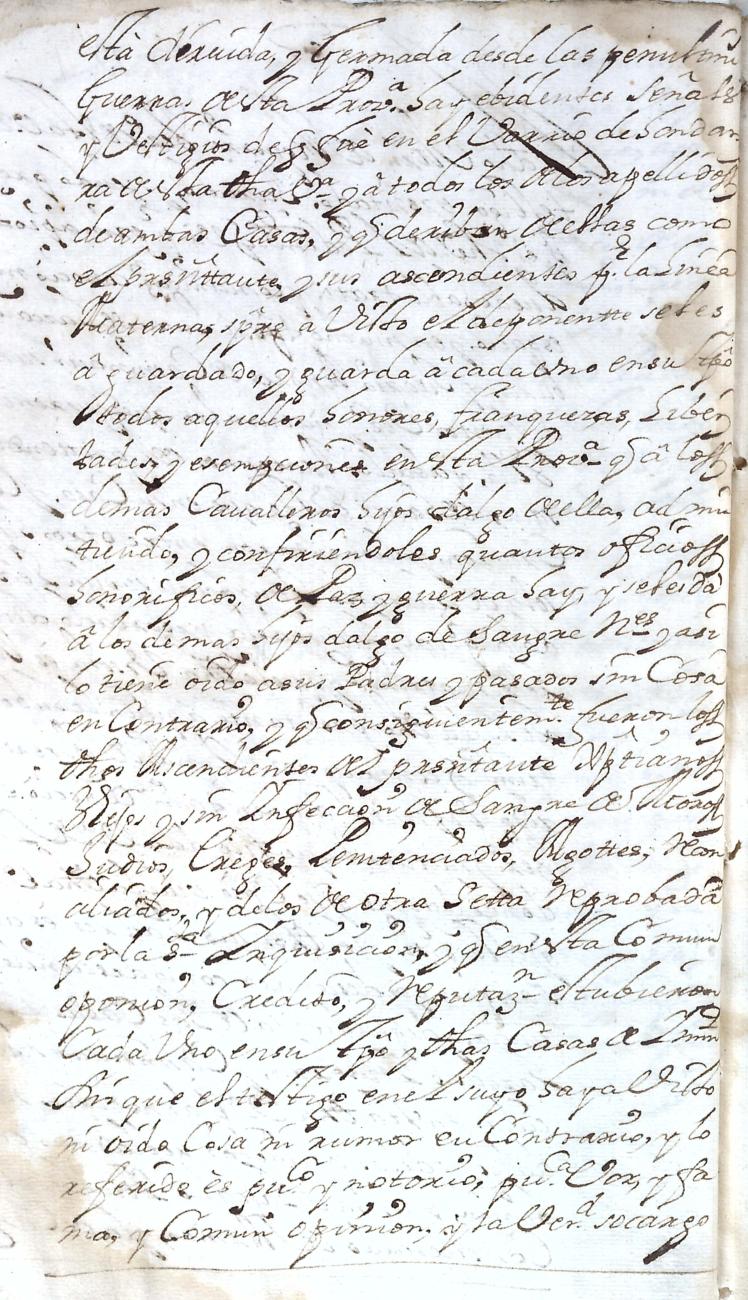 està deruida, y hermada desde las penultim
Guerras de esta Prov.ª hay ebidentes Señales
y Vestigios de q fuè en el Varrio de Hondar
ra de esta dha V.ª y â todos los de los apellidos
de ambas Casas, y q deriban de ellas como
el prsñtante y sus ascendientes p.r la Linea
Materna, spre à Visto el deponentte se les
â guardado, y guarda â cada uno en su tpô
todos aquellos honores, franquezas, Liber
tades, y esempciones en esta Prov.ª q â los
demas Cavalleros hijos dalgo de ella, admi
tiendo, y confiriendoles quantos oficios
honorificos, de Paz y guerra hay, y se les dà
â los demas hijos dalgo de Sangre N.es y asi
lo tiene oido a sus Padres y pasados sin Cosa
en Contrario, y q consiguientem.te fueron los
dhos Ascendientes del prsñtante Xptianos
Viejos y sin Infeccion de Sangre de Moros
Judios, Ereges, Penitenciados, Agottes, Recon
ciliados, y de los de otra Setta Reprobada
por la S.ta Inquisicion, y q en esta Comun
oponion, Credito, y Reputaz.n estubieron
Cada Uno en su Tpô y dhas Casas de
sin que el testigo en el suyo haya Visto
ni oido Cosa ni rumor en Contrario, y lo
referido ès pu.co y notorio, pu.ca Voz, y fa
ma, y Comun opinion, y la Ver.d so cargo